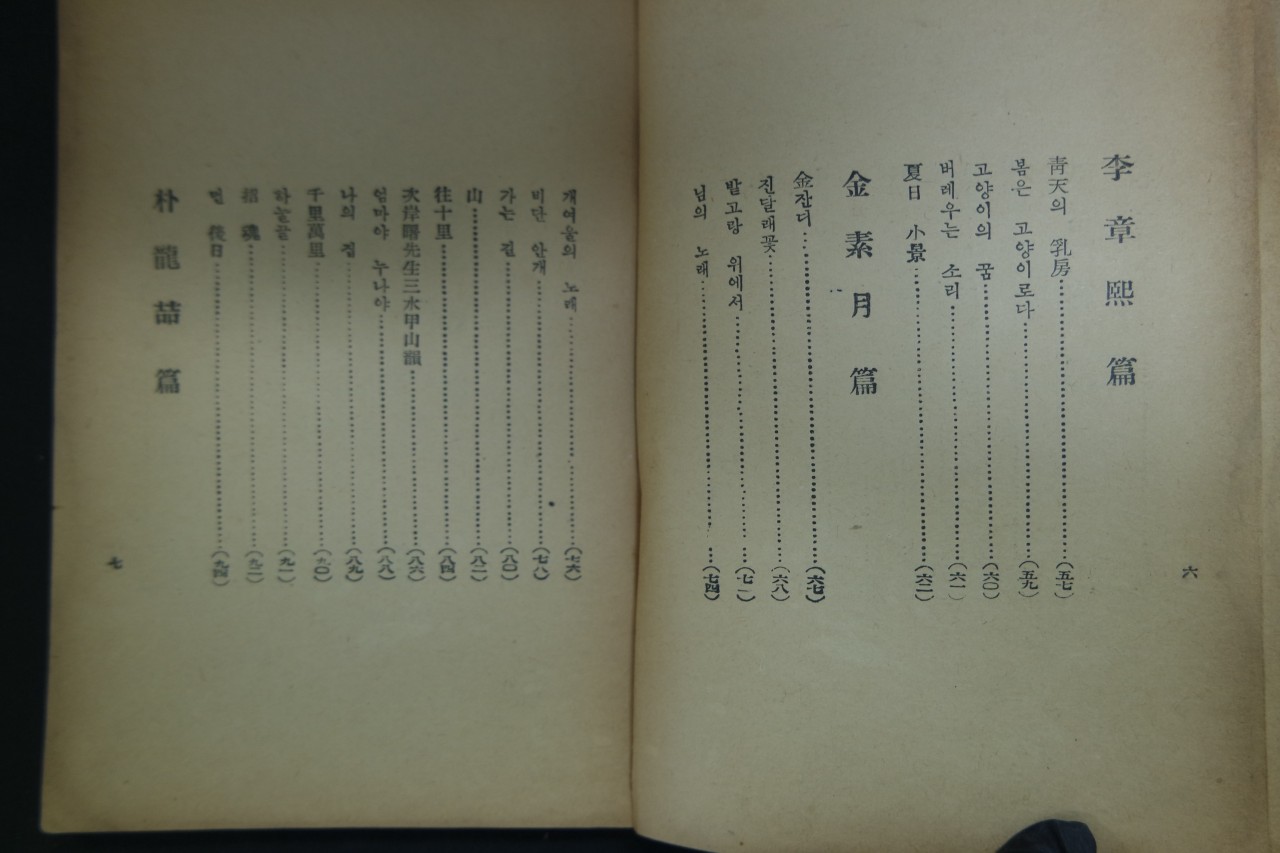 李章熙篇
靑天의 乳房……(五七)
봄은 고양이로다……(五九)
고양이의 꿈……(六〇)
버레우는 소리……(六一)
夏日 小景……(六二)
金素月篇
金잔디……(六七)
진달래꽃……(六八)
밭고랑 위에서……(七二)
님의 노래……(七四)
六
개여울의 노래……(七六)
비단 안개……(七八)
가는 길……(八〇)
山……(八二)
往十里……(八四)
次岸曙先生三水甲山韻……(八六)
엄마야 누나야……(八八)
나의 집……(八九)
千里萬里……(九〇)
하눌끝……(九一)
招魂……(九二)
먼 後日……(九四)
朴龍喆篇
七